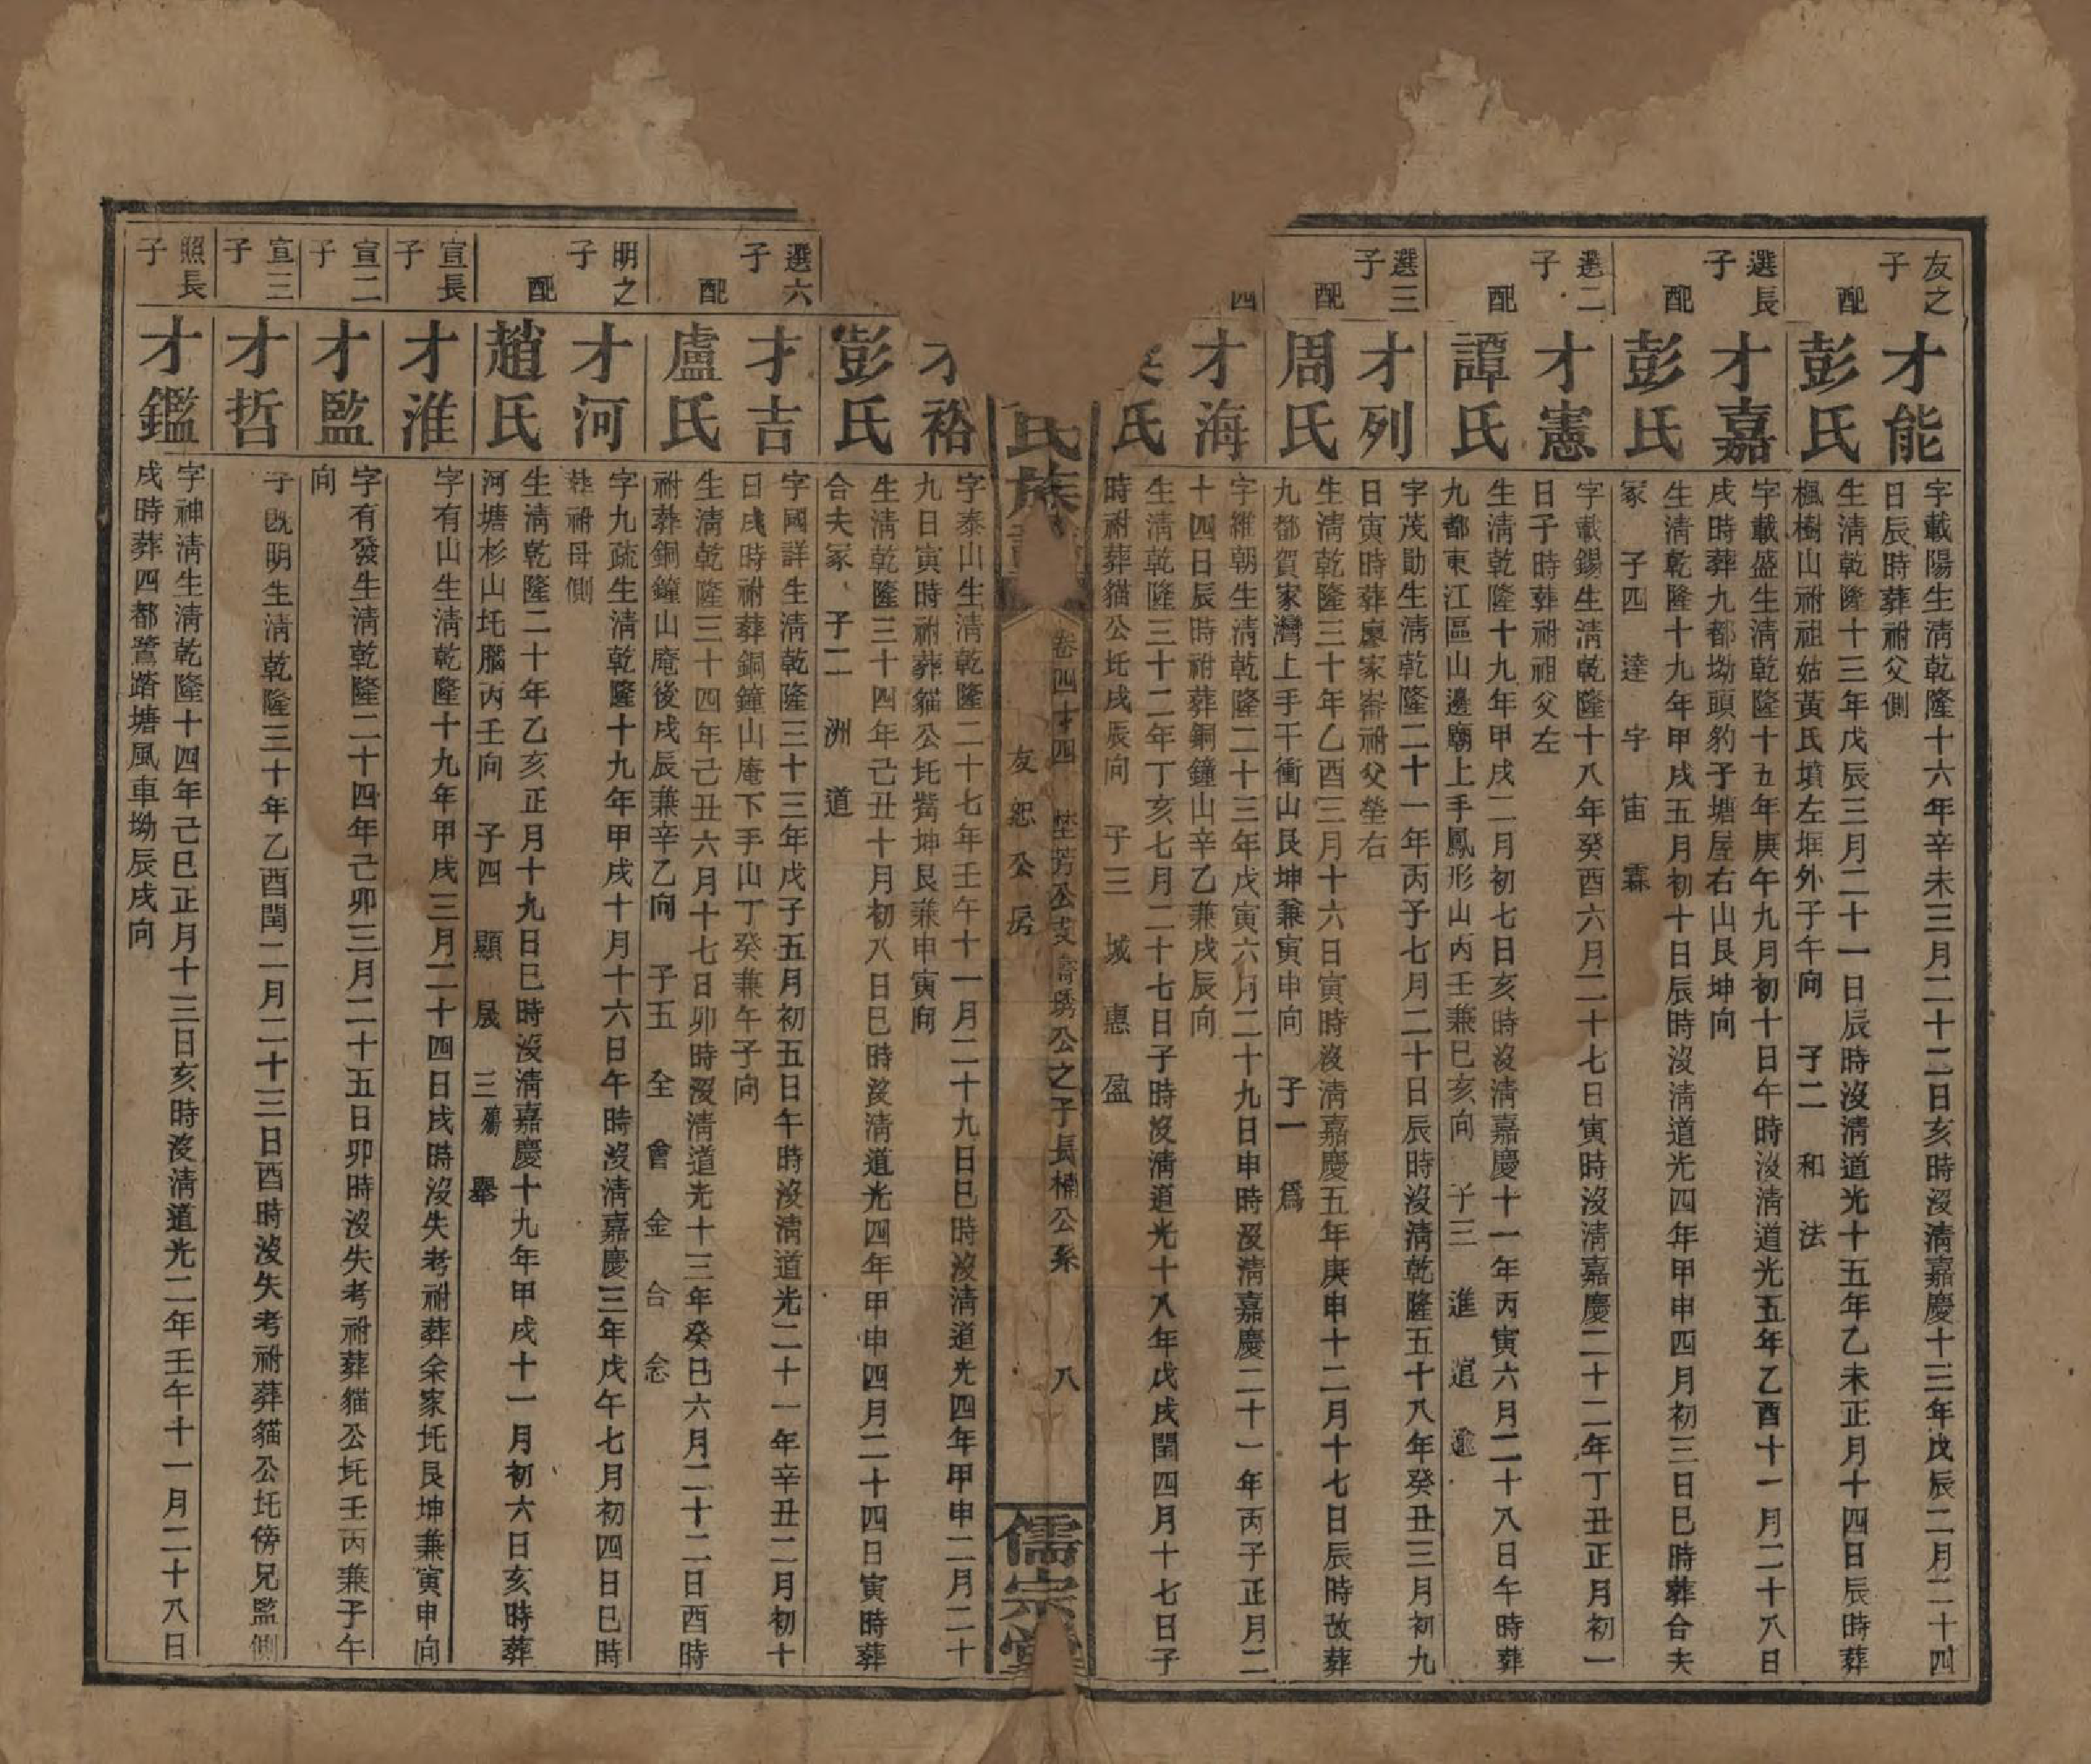 友之子
才能
字載陽生淸乾隆十六年辛未三月二十二日亥時沒淸嘉慶十三年戊辰二月二十四
日辰時葬祔父側
配
彭氏
生淸乾隆十三年戊辰三月二十一日辰時沒淸道光十五年乙未正月十四日辰時葬
楓樹山祔祖姑黃氏墳左堐外子午向 子二 和 法
選長子
才嘉
字載盛生淸乾隆十五年庚午九月初十日午時沒淸道光五年乙酉十一月二十八日
戌時葬九都坳頭豹子塘屋右山艮坤向
配
彭氏
生淸乾隆十九年甲戌五月初十日辰時沒淸道光四年甲申四月初三日巳時葬合夫
冢 子四 逵 宇 宙 霖
選二子
才憲
字載錫生淸乾隆十八年癸酉六月二十七日寅時沒淸嘉慶二十二年丁丑正月初一
日子時葬祔祖父左
配
譚氏
生淸乾隆十九年甲戌二月初七日亥時沒淸嘉慶十一年丙寅六月二十八日午時葬
九都東江區山邊廟上手鳳形山丙壬兼巳亥向 子三 進 逭 遄
選三子
才列
字茂勛生淸乾隆二十一年丙子七月二十日辰時沒淸乾隆五十八年癸丑三月初九
日寅時葬廖家崙祔父塋右
配
周氏
生淸乾隆三十年乙酉三月十六日寅時沒淸嘉慶五年庚申十二月十七日辰時改葬
九都賀家灣上手干衝山艮坤兼寅申向 子一 爲
四
才海
字維朝生淸乾隆二十三年戊寅六月二十九日申時沒淸嘉慶二十一年丙子正月二
十四日辰時祔葬銅鐘山辛乙兼戌辰向
氏
生淸乾隆三十二年丁亥七月二十七日子時沒淸道光十八年戊戌閏四月十七日子
時祔葬貓公圫戌辰向 子三 城 惠 盈
氏族
卷四才四 芳公支壽琇公之子長楠公系 八
友恕公房
儒宗堂
才裕
字泰山生淸乾隆二十七年壬午十一月二十九日巳時沒淸道光四年甲申二月二十
九日寅時祔葬貓公圫觜坤艮兼申寅向
彭氏
生淸乾隆三十四年己丑十月初八日巳時沒淸道光四年甲申四月二十四日寅時葬
合夫冢 子二 洲 道
選六子
才吉
字國詳生淸乾隆三十三年戊子五月初五日午時沒淸道光二十一年辛丑二月初十
日戌時祔葬銅鐘山庵下手山丁癸兼午子向
配
盧氏
生淸乾隆三十四年己丑六月十七日卯時沒淸道光十三年癸巳六月二十二日酉時
祔葬銅鐘山庵後戌辰兼辛乙向 子五 全 會 金 合 念
明之子
才河
字九疏生淸乾隆十九年甲戌十月十六日午時沒淸嘉慶三年戊午七月初四日巳時
葬祔母側
配
趙氏
生淸乾隆二十年乙亥正月十九日巳時沒淸嘉慶十九年甲戌十一月初六日亥時葬
河塘杉山圫腦丙壬向 子四 顯 晟 三殤 舉
宣長子
才淮
字有山生淸乾隆十九年甲戌三月二十四日戌時沒失考祔葬余家圫艮坤兼寅申向
宣二子
才監
字有發生淸乾隆二十四年己卯三月二十五日卯時沒失考祔葬貓公圫壬丙兼子午
向
宣三子
才哲
字既明生淸乾隆三十年乙酉閏二月二十三日酉時沒失考祔葬貓公圫傍兄監側
照長子
才鑑
字神淸生淸乾隆十四年己巳正月十三日亥時沒淸道光二年壬午十一月二十八日
戌時葬四都鷺踏塘風車坳辰戌向